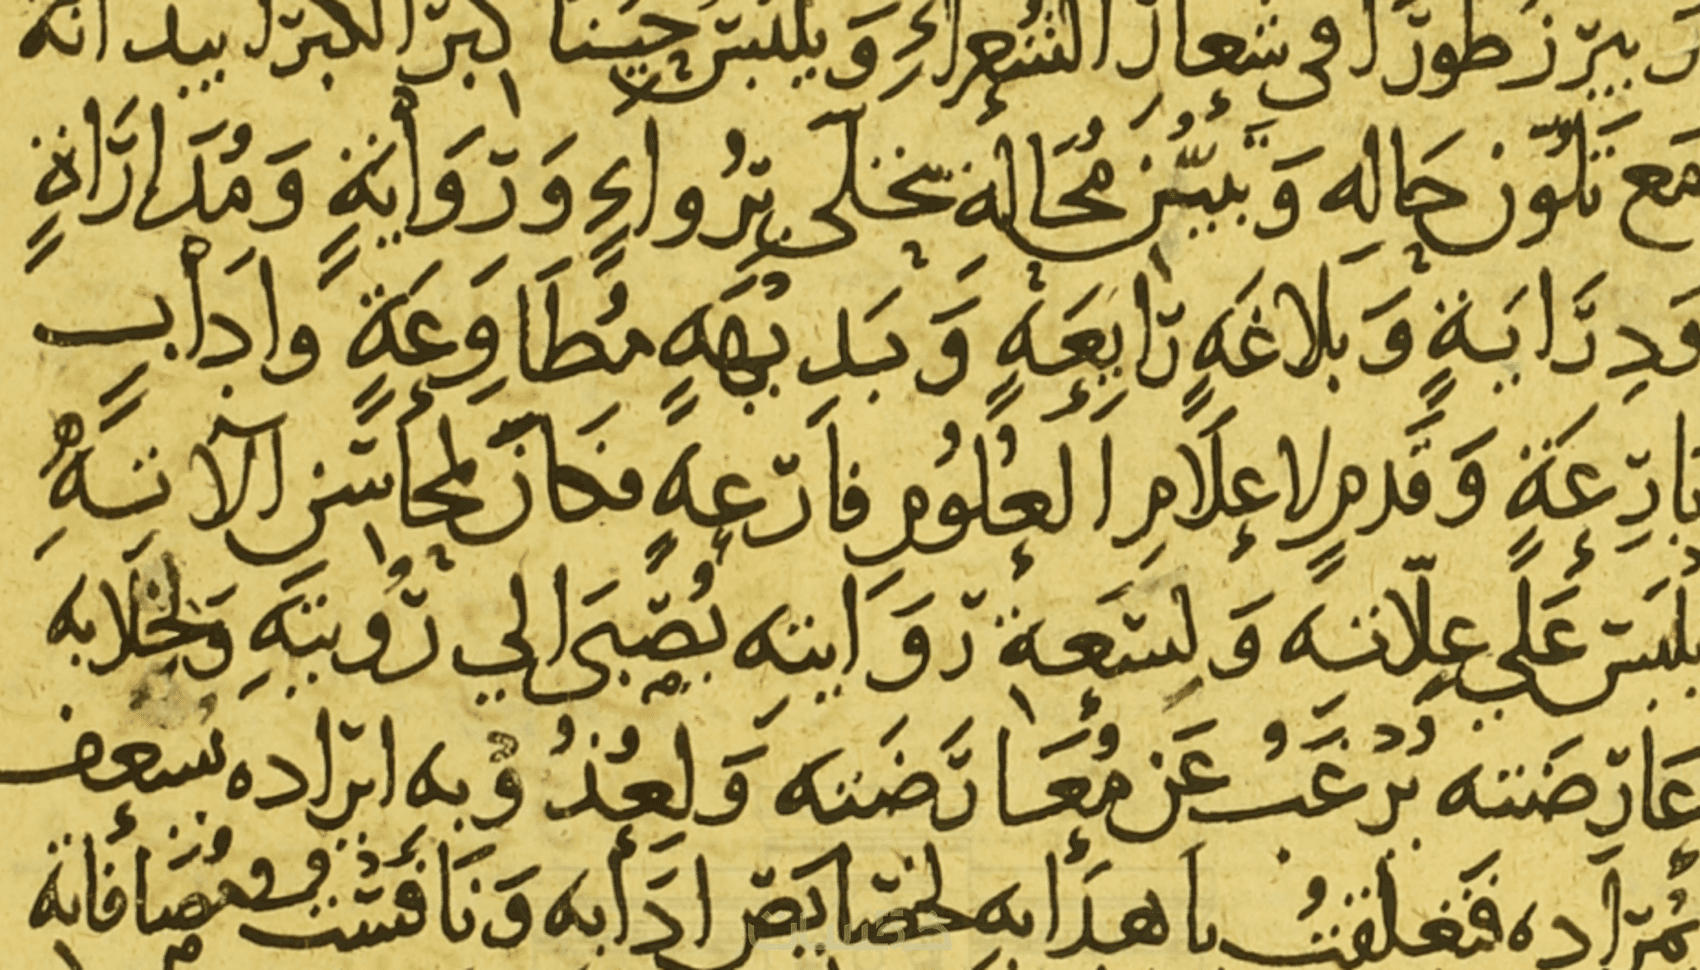 ويبرز طورا في شعار الشعراء ويلبس حينا كبر الكبرا بيد انه
مع تلون حاله وتبين محاله يتحلى برواء ورواية ومداراة
ودراية وبلاغة رايعة وبديهة مطاوعة واداب
بارعة وقدم لاعلام العلوم فارعة فكان لمحاسن الاته
يلبس على علاته ولسعة روايته يصبى الي رويته ولخلابة
عارضته يرغب عن معارضته ولعذوبة ايراده يسعف
بمراده فتعلقت باهدابه لخصايص ادابه ونافست في مصافاته